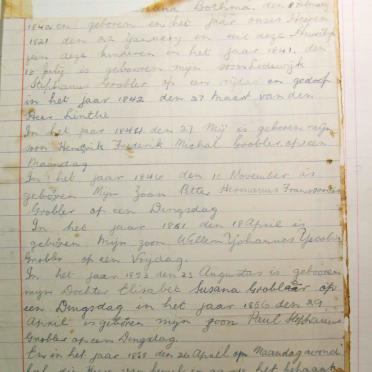 Bothma, den 8 February
1842 en geboren en het jaar onses Heeren
1821 den 22 January en uit deze Huwelijk
zijn deze kinderen in het jaar 1841, den
10 July is gebooren mijn soon Lodewijk
Stephanus Grobler op een vrijdag en gedoop
in het jaar 1842 den 27 Maart van den
Heer
In het jaar 1846 den 27 Mij is geboren mijn
soon Hendrik Frederik Michal Groobler, op een
Maandag
In het jaar 1846 den 10 November is
geboren Mijn Zoon Petter Hermanus Fran
Grobler op een Dingsdag
In het jaar 1851 den 18 April is
geboren Mijn zoon Willem Johannes Jacobus
Grobler op een Vrijdag.
In het jaar 1853 den 23 Augustus is gebooren
mijn Dochter Elisabet Susana Groblaar op
een Dingsdag in het jaar 1856 den 29
April is geboren mijn zoon Paul Stephanus
Grobler op een Dingsdag.
En in het jaar 1858 den 26 April op Maandag avond
het die Heere van hemel en aarde het behaag